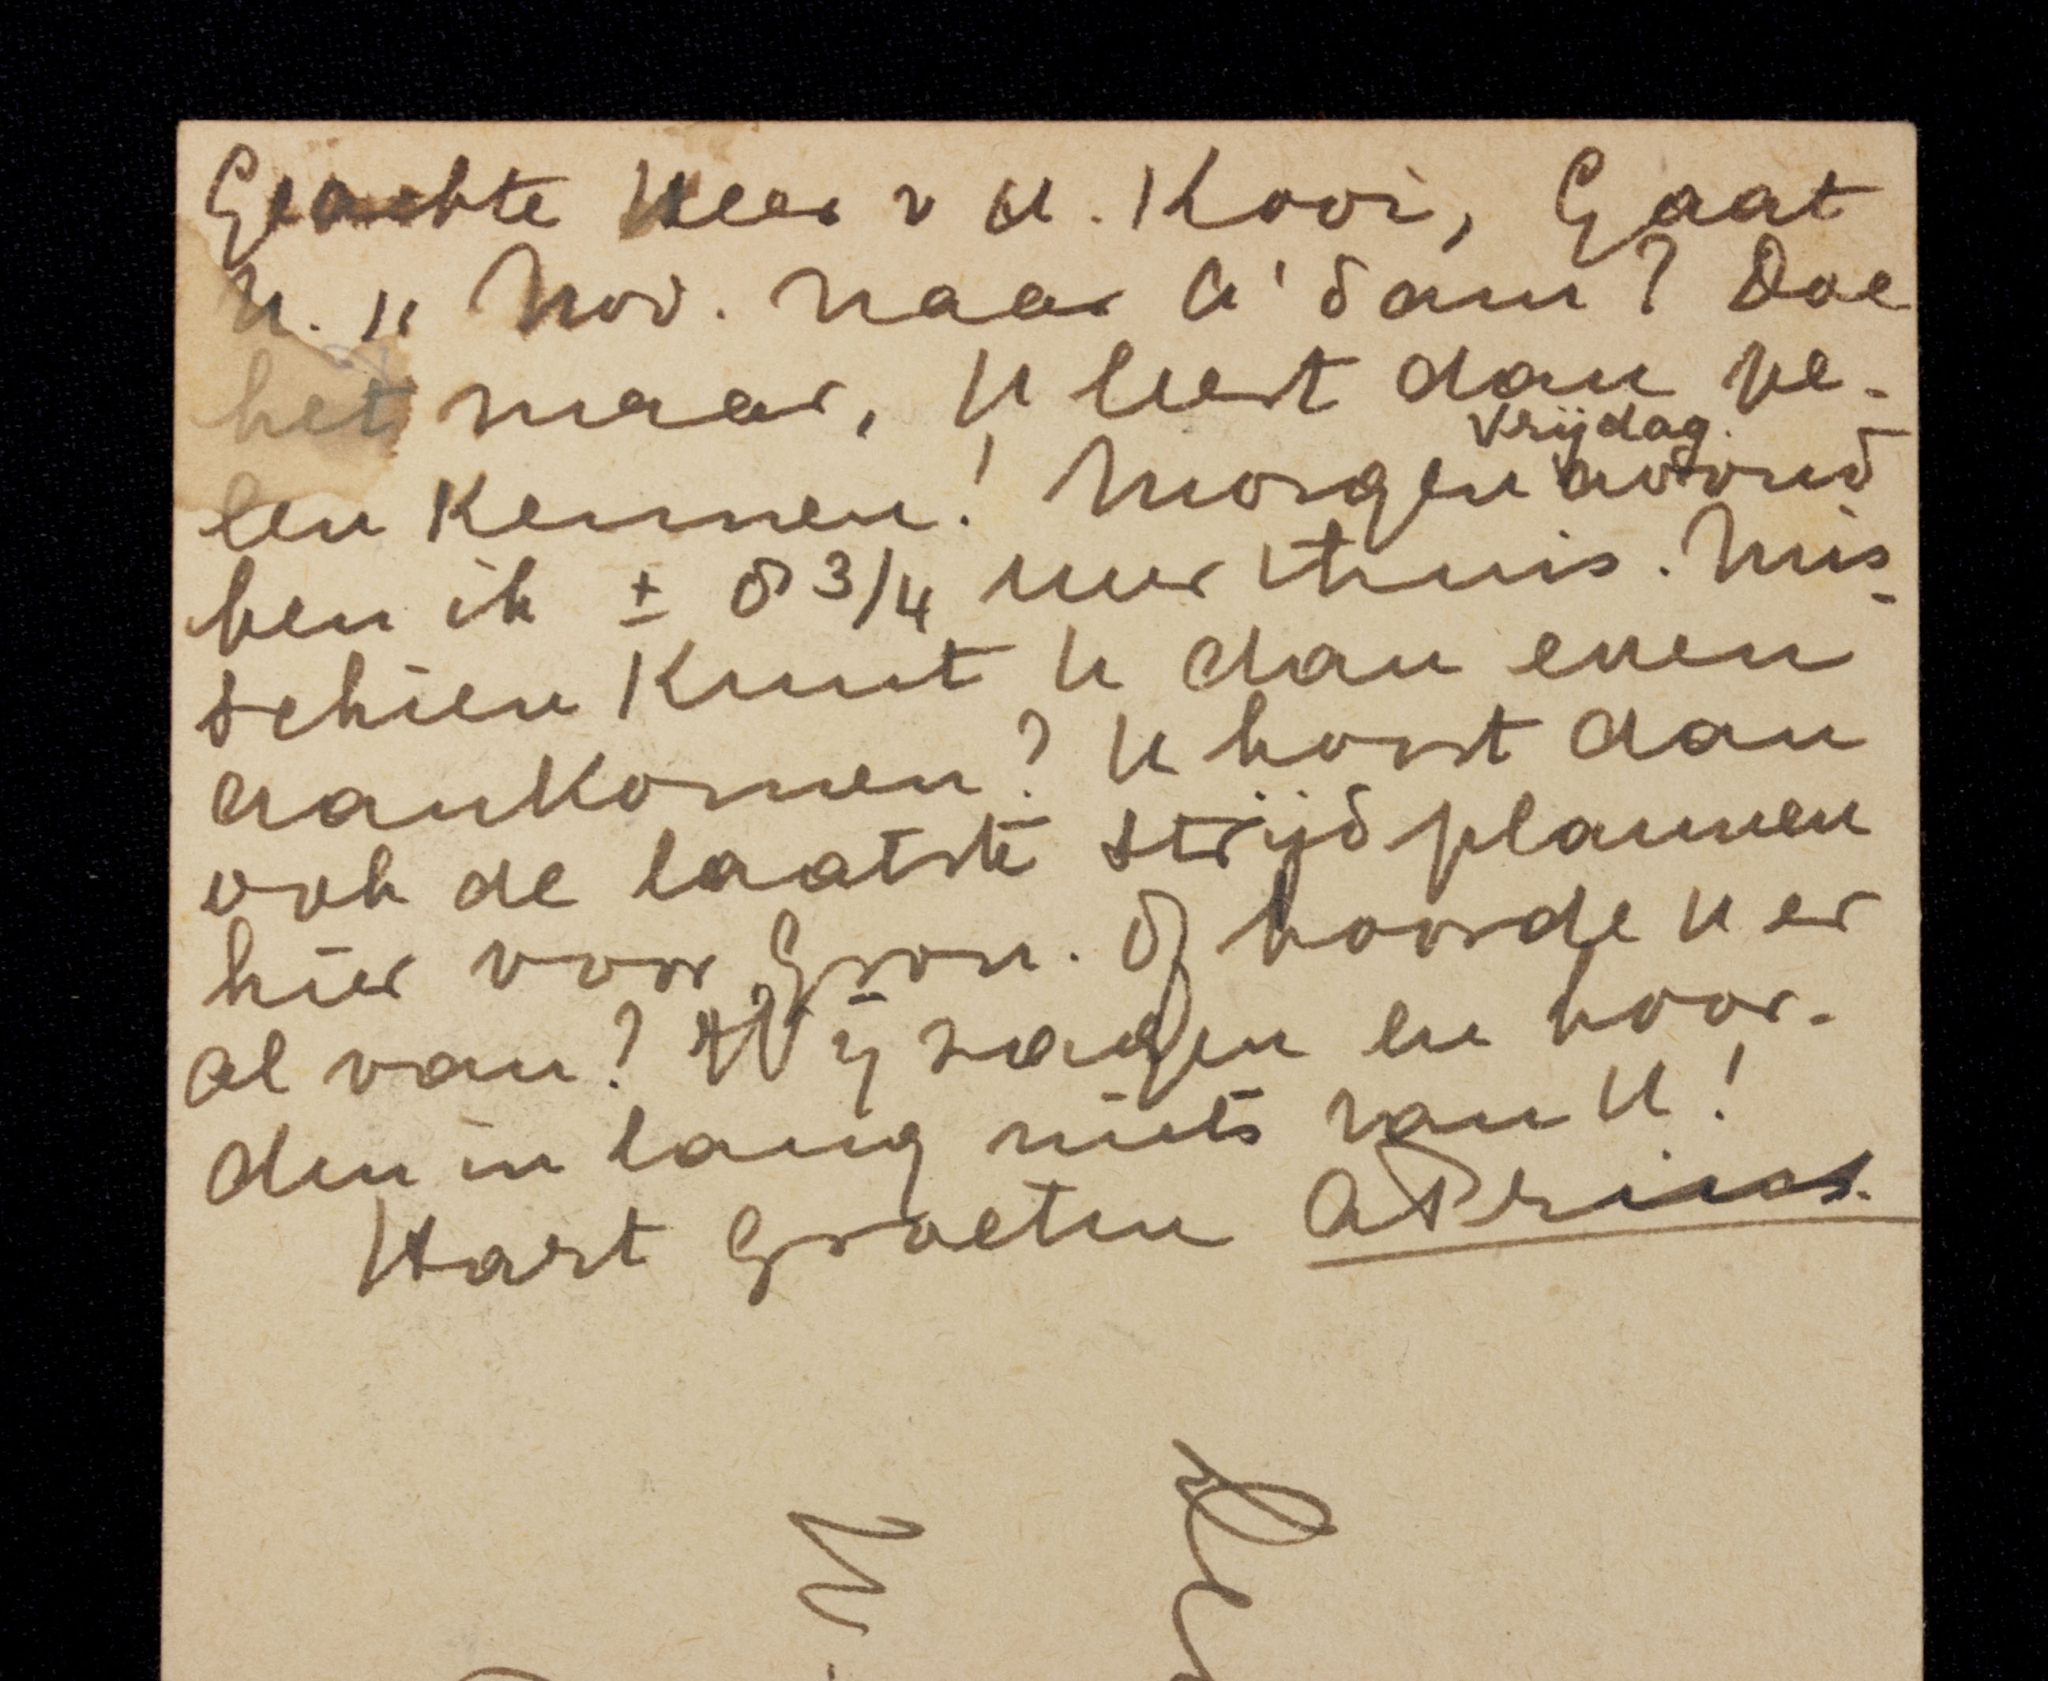 Geachte Heer v d. Kooi, Gaat
U. 11 Nov. naar A'dam? Doe
het maar, U leert dan ve-
vrijdag.
len kennen! Morgen avond
ben ik ± 8 3/4 uur thuis. Mis-
schien kunt U dan even
aankomen? U hoort dan
ook de laatste strijdplannen
hier voor Gron. Of hoorde U er
al van? Wij zagen en hoor-
den in lang niets van U!
Hart Groeten A Prins.